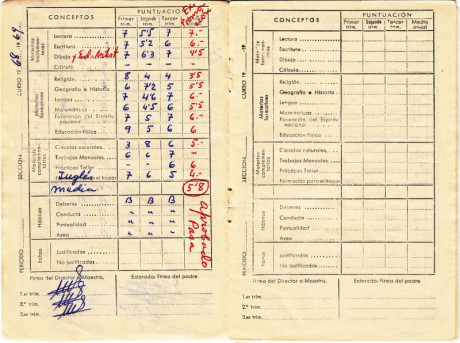 CONCEPTOS
PUNTUACION
Primer trim. Segundo trim. Tercer trim.
CURSO 1968-1969
Lectura 7 5'5 7 6.-
Escritura 7 5'2 6 6.-
Dibujo y Ed. Artist 7 6'3 7 4'5
Cálculo
Materias formativas
Religión 8 4 4 3'5
Geografía e Historia 6 7'2 5 5'5
Lengua 7 4'6 7 6.-
Matemáticas 6 4'5 6 5'5
Formación del Espíritu nacional 7 5 7 6.-
Educación Física 9 5 6 6.-
Materias complementarias
Ciencias naturales 3 8 6 5.-
Trabajos Manuales 6 6 7 -
Prácticas Taller - - 6 6
Formación para el hogar
Inglés 7 6 5 4.-
media 5'8
SECCION
Hábitos
Deberes B B B
Conducta " " "
Trabajo " " "
Aseo " " "
Aprobado
Pasa
Faltas
Justificadas
No justificadas
PERIODO
Firma del Director o Maestro,
Enterado: Firma del padre
1.er trim.
2.º trim.
3.er trim.
CONCEPTOS
PUNTUACION
Primer trim. Segundo trim. Tercer trim. Media anual
CURSO 19
Lectura
Escritura
Dibujo
Cálculo
Materias formativas
Religión
Geografía e Historia
Lengua
Matemáticas
Formación del Espíritu nacional
Educación Física
Materias complementarias
Ciencias naturales
Trabajos Manuales
Prácticas Taller
Formación para el hogar
SECCION
Hábitos
Deberes
Conducta
Trabajo
Aseo
Faltas
Justificadas
No justificadas
PERIODO
Firma del Director o Maestro,
Enterado: Firma del padre
1.er trim.
2.º trim.
3.er trim.